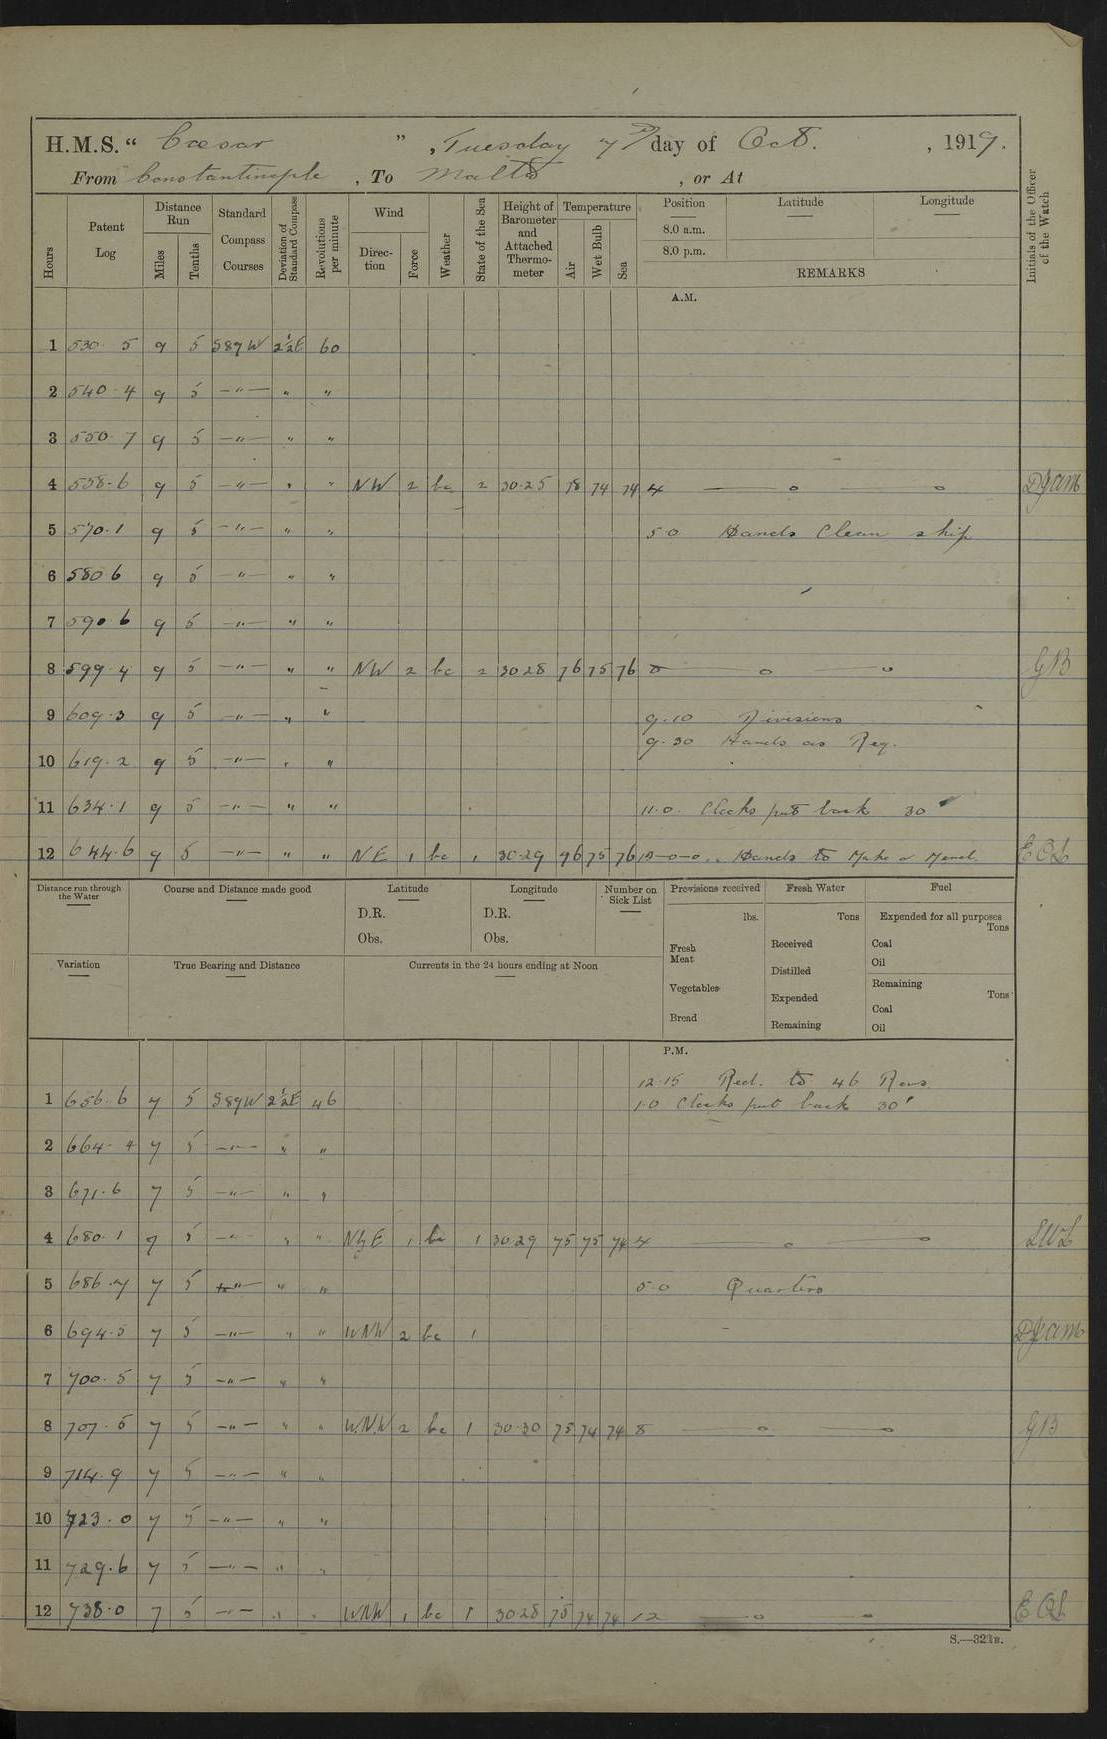 H.M.S. " Cæsar ", Tuesday 7th day of Oct., 1919.
From Constantinople, To Malta, or At
Hours
Patent Log
Distance Run
Miles
Tenths
Standard Compass Courses
Deviation of Standard Compass
Revolutions per minute
Wind
Direction
Force
Weather
State of the Sea
Height of Barometer and Attached Thermometer
Temperature
Air
Wet Bulb
Sea
Position Latitude Longitude
8.0 a.m.
8.0 p.m.
REMARKS
Initials of the Officer of the Watch
A.M.
1 530.5 9 5 S89W 2½E 60
2 540.4 9 5 —"— " "
3 550.7 9 5 —"— " "
4 558.6 9 5 —"— " " NW 2 bc 2 30.25 78 74 74 4 — o — o
5 570.1 9 5 —"— " " 5.0 Hands Clean ship
6 580 6 9 5 —"— " "
7 590.6 9 5 —"— " "
8 599.4 9 5 —"— " " NW 2 bc 2 30 28 76 75 76 8 — o — o GB
9 609.3 9 5 —"— " " 9.10 Divisions
9.30 Hands as Req.
10 619.2 9 5 —"— " "
11 634.1 9 5 —"— " " 11.0. Clocks put back 30'
12 644.6 9 5 —"— " " NE 1 bc 1 30.29 76 75 76 12—o—o. Hands to Make & Mend.
Distance run through the Water
Course and Distance made good
Latitude
D.R.
Obs.
Longitude
D.R.
Obs.
Number on Sick List
Provisions received
lbs.
Fresh Meat
Vegetables
Bread
Fresh Water
Tons
Received
Distilled
Expended
Remaining
Fuel
Expended for all purposes
Tons
Coal
Oil
Remaining
Tons
Coal
Oil
Variation
True Bearing and Distance
Currents in the 24 hours ending at Noon
P.M.
12.15 Red. to 46 Revs
1 656.6 7 5 S89W 2½E 46 1.0 Clocks put back 30'
2 664.4 7 5 —"— " "
3 671.6 7 5 —"— " "
4 680.1 7 5 —"— " " NbE 1 bc 1 30.29 75 75 74 4 — o — o
5 686.7 7 5 —"— " " 5.0 Quarters
6 694.5 7 5 —"— " " WNW 2 bc 1
7 700.5 7 5 —"— " "
8 707.5 7 5 —"— " " W.N.W 2 bc 1 30.30 75 74 74 8 — o — o GB
9 714.9 7 5 —"— " "
10 723.0 7 5 —"— " "
11 729.6 7 5 —"— " "
12 738.0 7 5 —"— " " WNW 1 bc 1 30.28 75 74 74 12 — o — o
S.—321B.